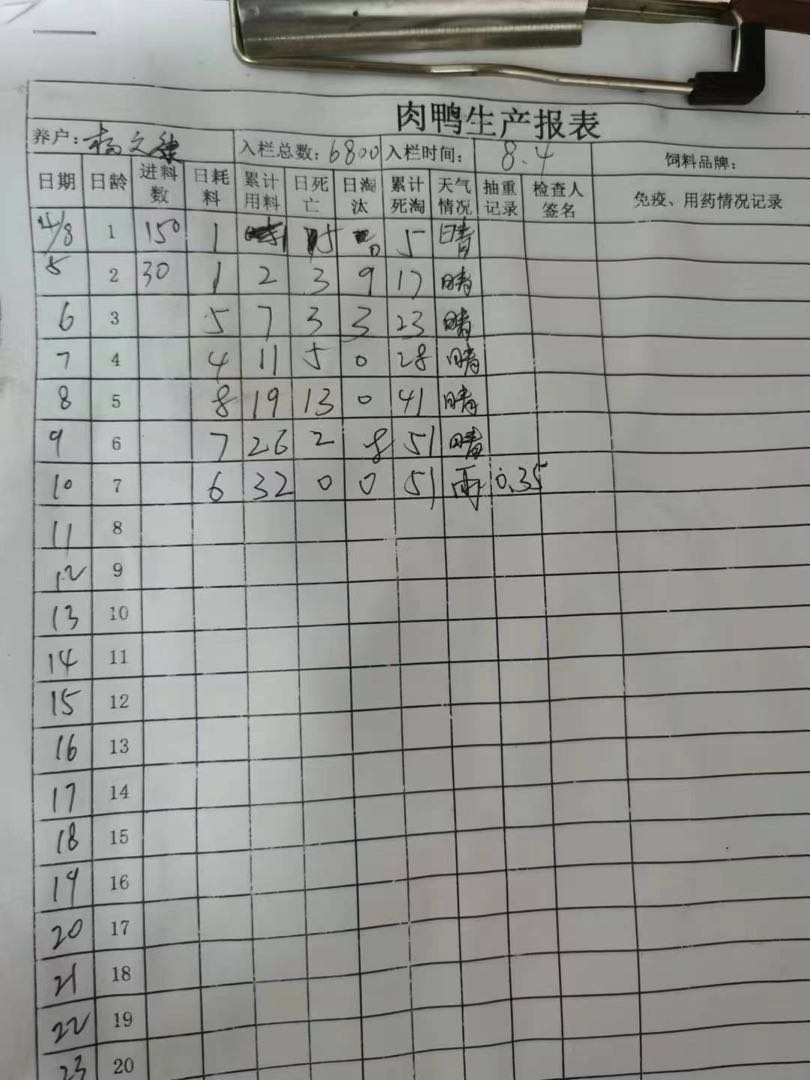 肉鸭生产报表
养户: 杨文 入栏总数: 6800 入栏时间: 8.4 饲料品牌:
日期 日龄 进料数 日耗料 累计用料 日死亡 日淘汰 累计死淘 天气情况 抽重记录 检查人签名 免疫、用药情况记录
4/8 1 150 1 1 5 5 晴
5 2 30 1 2 3 9 17 晴
6 3 5 7 3 3 23 晴
7 4 4 11 5 0 28 晴
8 5 8 19 13 0 41 晴
9 6 7 26 2 8 51 晴
10 7 6 32 0 0 51 雨 0.35
11 8
12 9
13 10
14 11
15 12
16 13
17 14
18 15
19 16
20 17
21 18
22 19
23 20